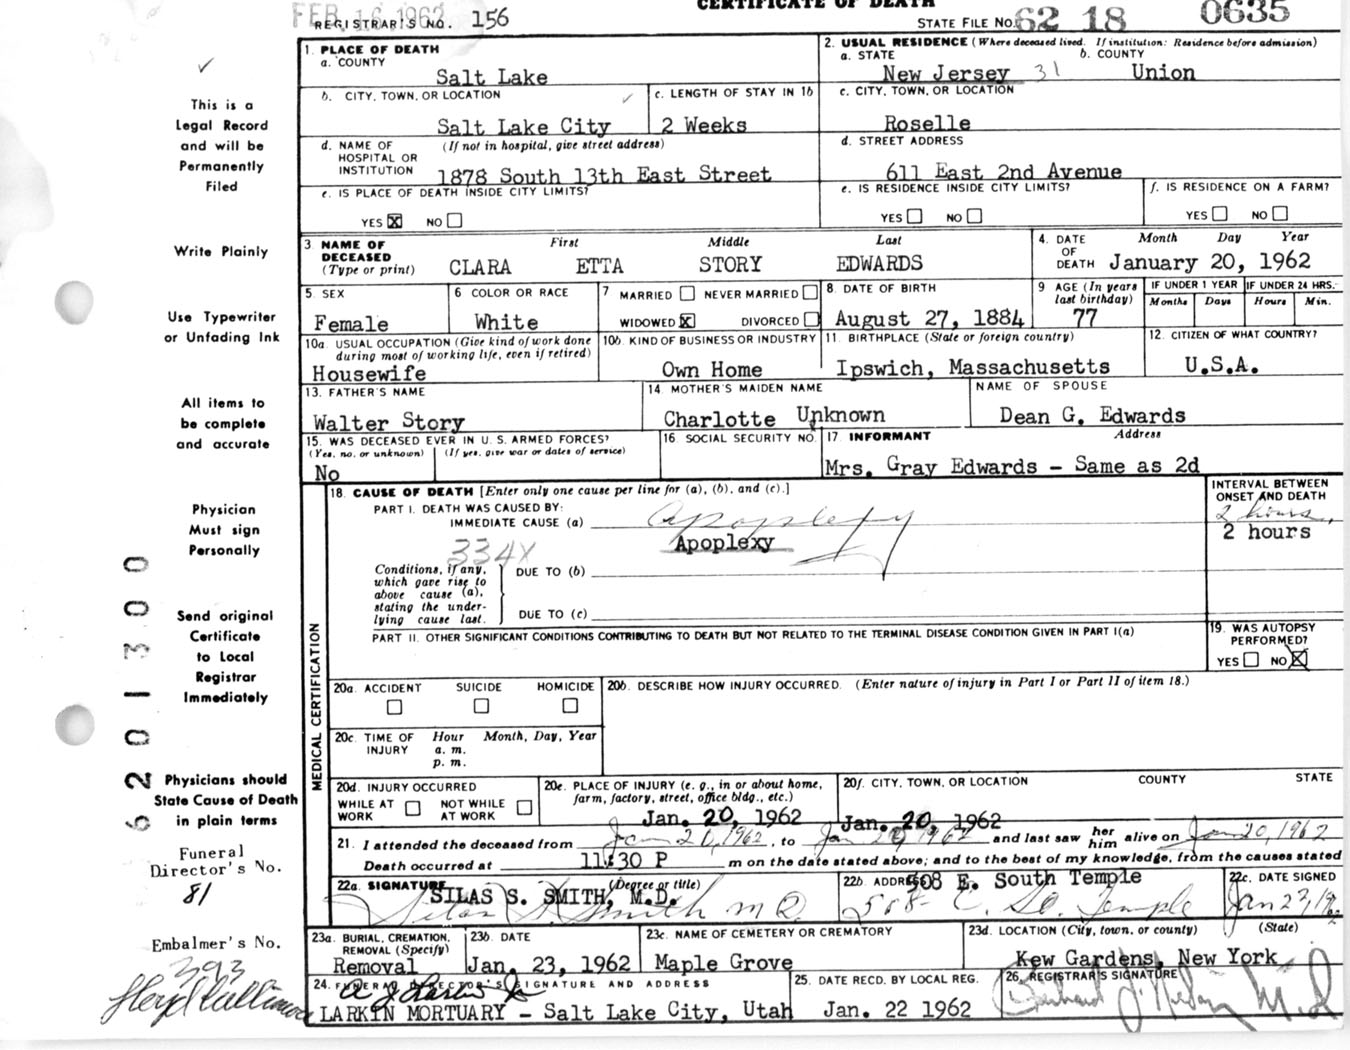 CERTIFICATE OF DEATH
FEB 16 1962
REGISTRAR'S NO. 156
STATE FILE NO. 62 18 0635
1. PLACE OF DEATH
a. COUNTY
Salt Lake
2. USUAL RESIDENCE (Where deceased lived. If institution: Residence before admission)
a. STATE b. COUNTY
New Jersey 31 Union
b. CITY, TOWN, OR LOCATION
Salt Lake City
c. LENGTH OF STAY IN 1b
2 Weeks
c. CITY, TOWN, OR LOCATION
Roselle
d. NAME OF HOSPITAL OR INSTITUTION (If not in hospital, give street address)
1878 South 13th East Street
d. STREET ADDRESS
611 East 2nd Avenue
e. IS PLACE OF DEATH INSIDE CITY LIMITS?
YES X NO
e. IS RESIDENCE INSIDE CITY LIMITS?
YES NO
f. IS RESIDENCE ON A FARM?
YES NO
3. NAME OF DECEASED (Type or print)
First Middle Last
CLARA ETTA STORY EDWARDS
4. DATE OF DEATH
Month Day Year
January 20, 1962
5. SEX
Female
6 COLOR OR RACE
White
7 MARRIED NEVER MARRIED
WIDOWED X DIVORCED
8. DATE OF BIRTH
August 27, 1884
9 AGE (In years last birthday)
77
IF UNDER 1 YEAR
Months Days
IF UNDER 24 HRS.
Hours Min.
10a. USUAL OCCUPATION (Give kind of work done during most of working life, even if retired)
Housewife
10b. KIND OF BUSINESS OR INDUSTRY
Own Home
11. BIRTHPLACE (State or foreign country)
Ipswich, Massachusetts
12. CITIZEN OF WHAT COUNTRY?
U.S.A.
13. FATHER'S NAME
Walter Story
14. MOTHER'S MAIDEN NAME
Charlotte Unknown
NAME OF SPOUSE
Dean G. Edwards
15. WAS DECEASED EVER IN U. S. ARMED FORCES?
(Yes, no, or unknown) (If yes, give war or dates of service)
No
16. SOCIAL SECURITY NO.
17. INFORMANT Address
Mrs. Gray Edwards - Same as 2d
MEDICAL CERTIFICATION
18. CAUSE OF DEATH [Enter only one cause per line for (a), (b), and (c).]
PART I. DEATH WAS CAUSED BY:
IMMEDIATE CAUSE (a) apoplexy
Apoplexy
334X
INTERVAL BETWEEN ONSET AND DEATH
2 hours
2 hours
Conditions, if any, which gave rise to above cause (a), stating the underlying cause last.
DUE TO (b)
DUE TO (c)
PART II. OTHER SIGNIFICANT CONDITIONS CONTRIBUTING TO DEATH BUT NOT RELATED TO THE TERMINAL DISEASE CONDITION GIVEN IN PART I(a)
19. WAS AUTOPSY PERFORMED?
YES NO X
20a. ACCIDENT SUICIDE HOMICIDE
20b. DESCRIBE HOW INJURY OCCURRED. (Enter nature of injury in Part I or Part II of item 18.)
20c. TIME OF INJURY
Hour Month, Day, Year
a. m.
p. m.
20d. INJURY OCCURRED
WHILE AT WORK NOT WHILE AT WORK
20e. PLACE OF INJURY (e. g., in or about home, farm, factory, street, office bldg., etc.)
20f. CITY, TOWN, OR LOCATION COUNTY STATE
Jan. 20, 1962 Jan. 20, 1962
21. I attended the deceased from Jan 20, 1962, to Jan 20, 1962 and last saw her him alive on Jan 20, 1962
Death occurred at 11:30 P m on the date stated above; and to the best of my knowledge, from the causes stated
22a. SIGNATURE (Degree or title)
SILAS S. SMITH, M.D.
Silas S. Smith MD
22b. ADDRESS
508 E. South Temple
508 E. So. Temple
22c. DATE SIGNED
Jan 23, 1962
23a. BURIAL, CREMATION, REMOVAL (Specify)
Removal
23b. DATE
Jan. 23, 1962
23c. NAME OF CEMETERY OR CREMATORY
Maple Grove
23d. LOCATION (City, town, or county) (State)
Kew Gardens, New York
24. FUNERAL DIRECTOR'S SIGNATURE AND ADDRESS
LARKIN MORTUARY - Salt Lake City, Utah
25. DATE RECD. BY LOCAL REG.
Jan. 22 1962
26. REGISTRAR'S SIGNATURE
This is a
Legal Record
and will be
Permanently
Filed
Write Plainly
Use Typewriter
or Unfading Ink
All items to
be complete
and accurate
Physician
Must sign
Personally
Send original
Certificate
to Local
Registrar
Immediately
Physicians should
State Cause of Death
in plain terms
Funeral
Director's No.
81
Embalmer's No.
393
6201300